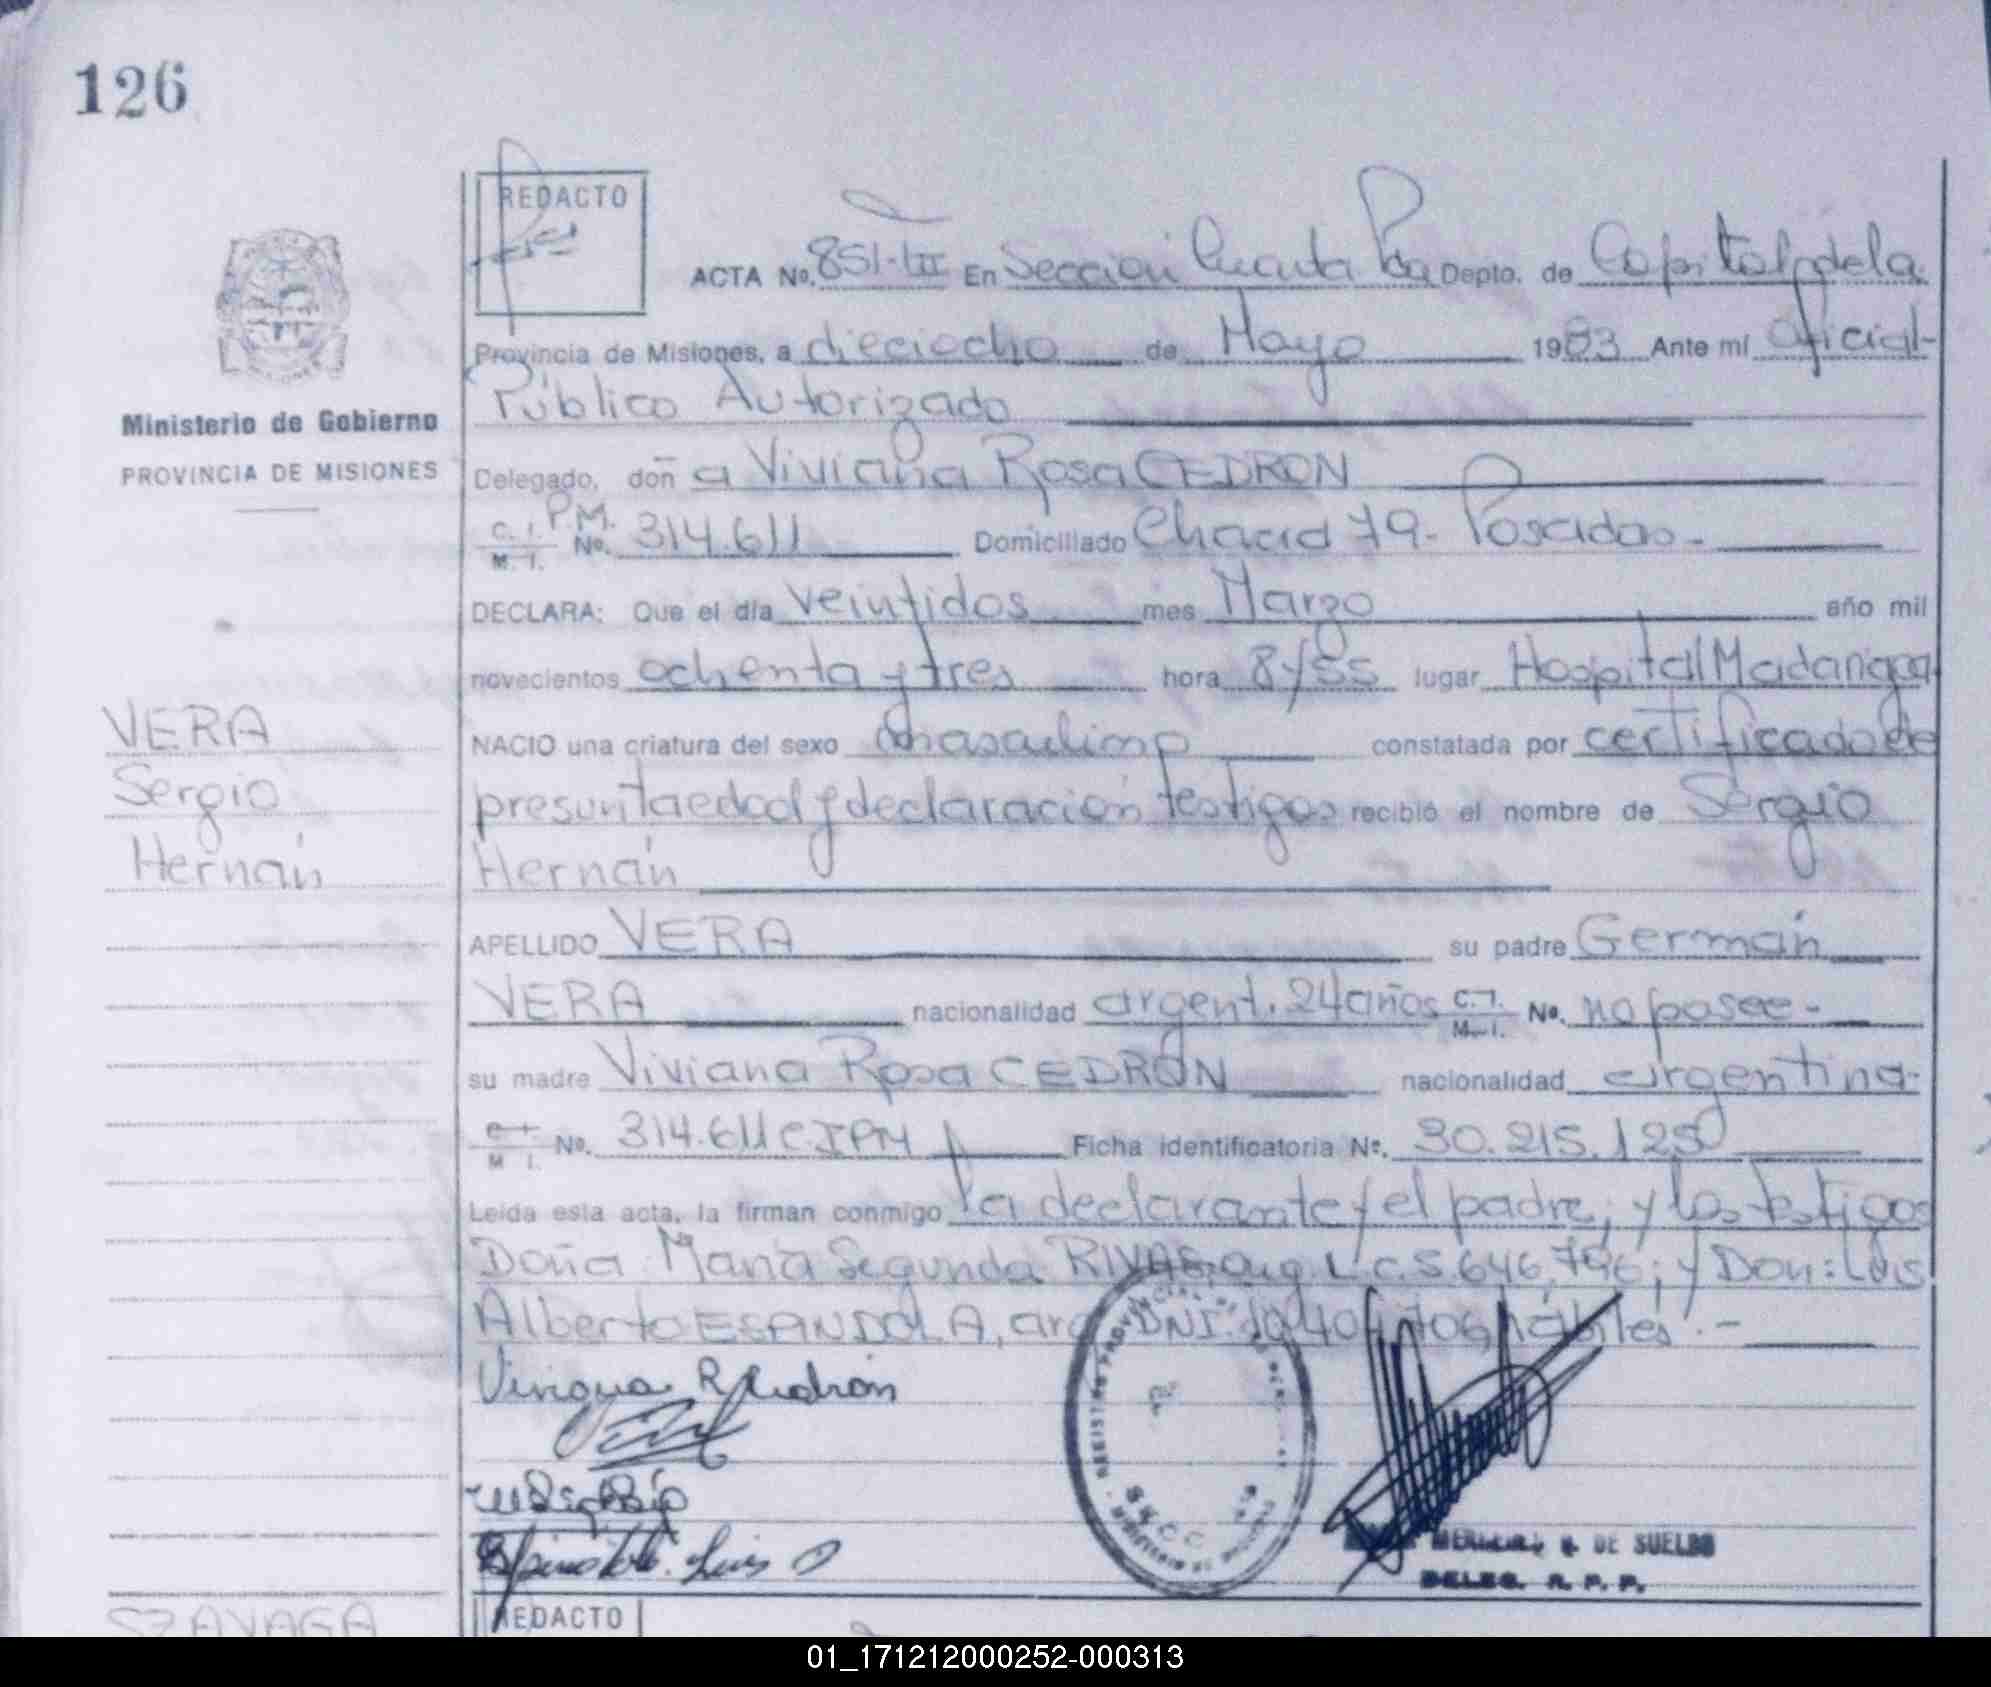 126
REDACTO
ACTA No. 851-III En Sección Cuarta Pdas Depto. de Capital, de la
Provincia de Misiones, a dieciocho de Mayo 1983 Ante mí Oficial
Público Autorizado
Ministerio de Gobierno
PROVINCIA DE MISIONES
Delegado, doñ a Viviana Rosa CEDRON
C. I. P.M.
M. I. No. 314.611 Domiciliado Chacra 79- Posadas-
DECLARA: Que el día veintidos mes Marzo año mil
novecientos ochenta y tres hora 8/55 lugar Hospital Madariaga
VERA
Sergio
Hernán
NACIO una criatura del sexo masculino constatada por certificado de
presunta edad y declaración testigos recibió el nombre de Sergio
Hernán
APELLIDO VERA su padre Germán
VERA nacionalidad argent. 24 años C.I. M.I. No. no posee-
su madre Viviana Rosa CEDRON nacionalidad argentina-
M I. No. 314.611 C.I.P.M Ficha identificatoria No. 30.215.125
Leida esta acta, la firman conmigo la declarante y el padre; y los testigos
Doña María Segunda RIVAS, arg. L.C. 5.646.796; y Don: Luis
Alberto ESPINDOLA, arg. DNI. hábiles.-
Viviana R Cedrón
Luis
REGISTRO PROVINCIAL DE LAS PERSONAS
DE SUELDO
DELEG. R. P. P.
REDACTO
01_171212000252-000313